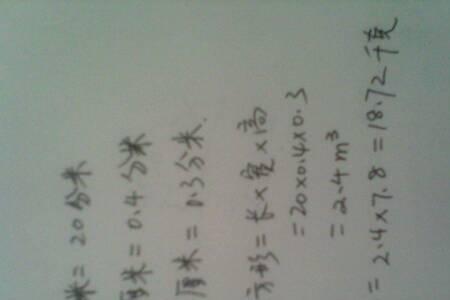 米= 20分米
厘米= 0.4分米
厘米= 0.3分米.
方形=长×宽×高
=20×0.4×0.3
=2.4m³
=2.4×7.8=18.72千克